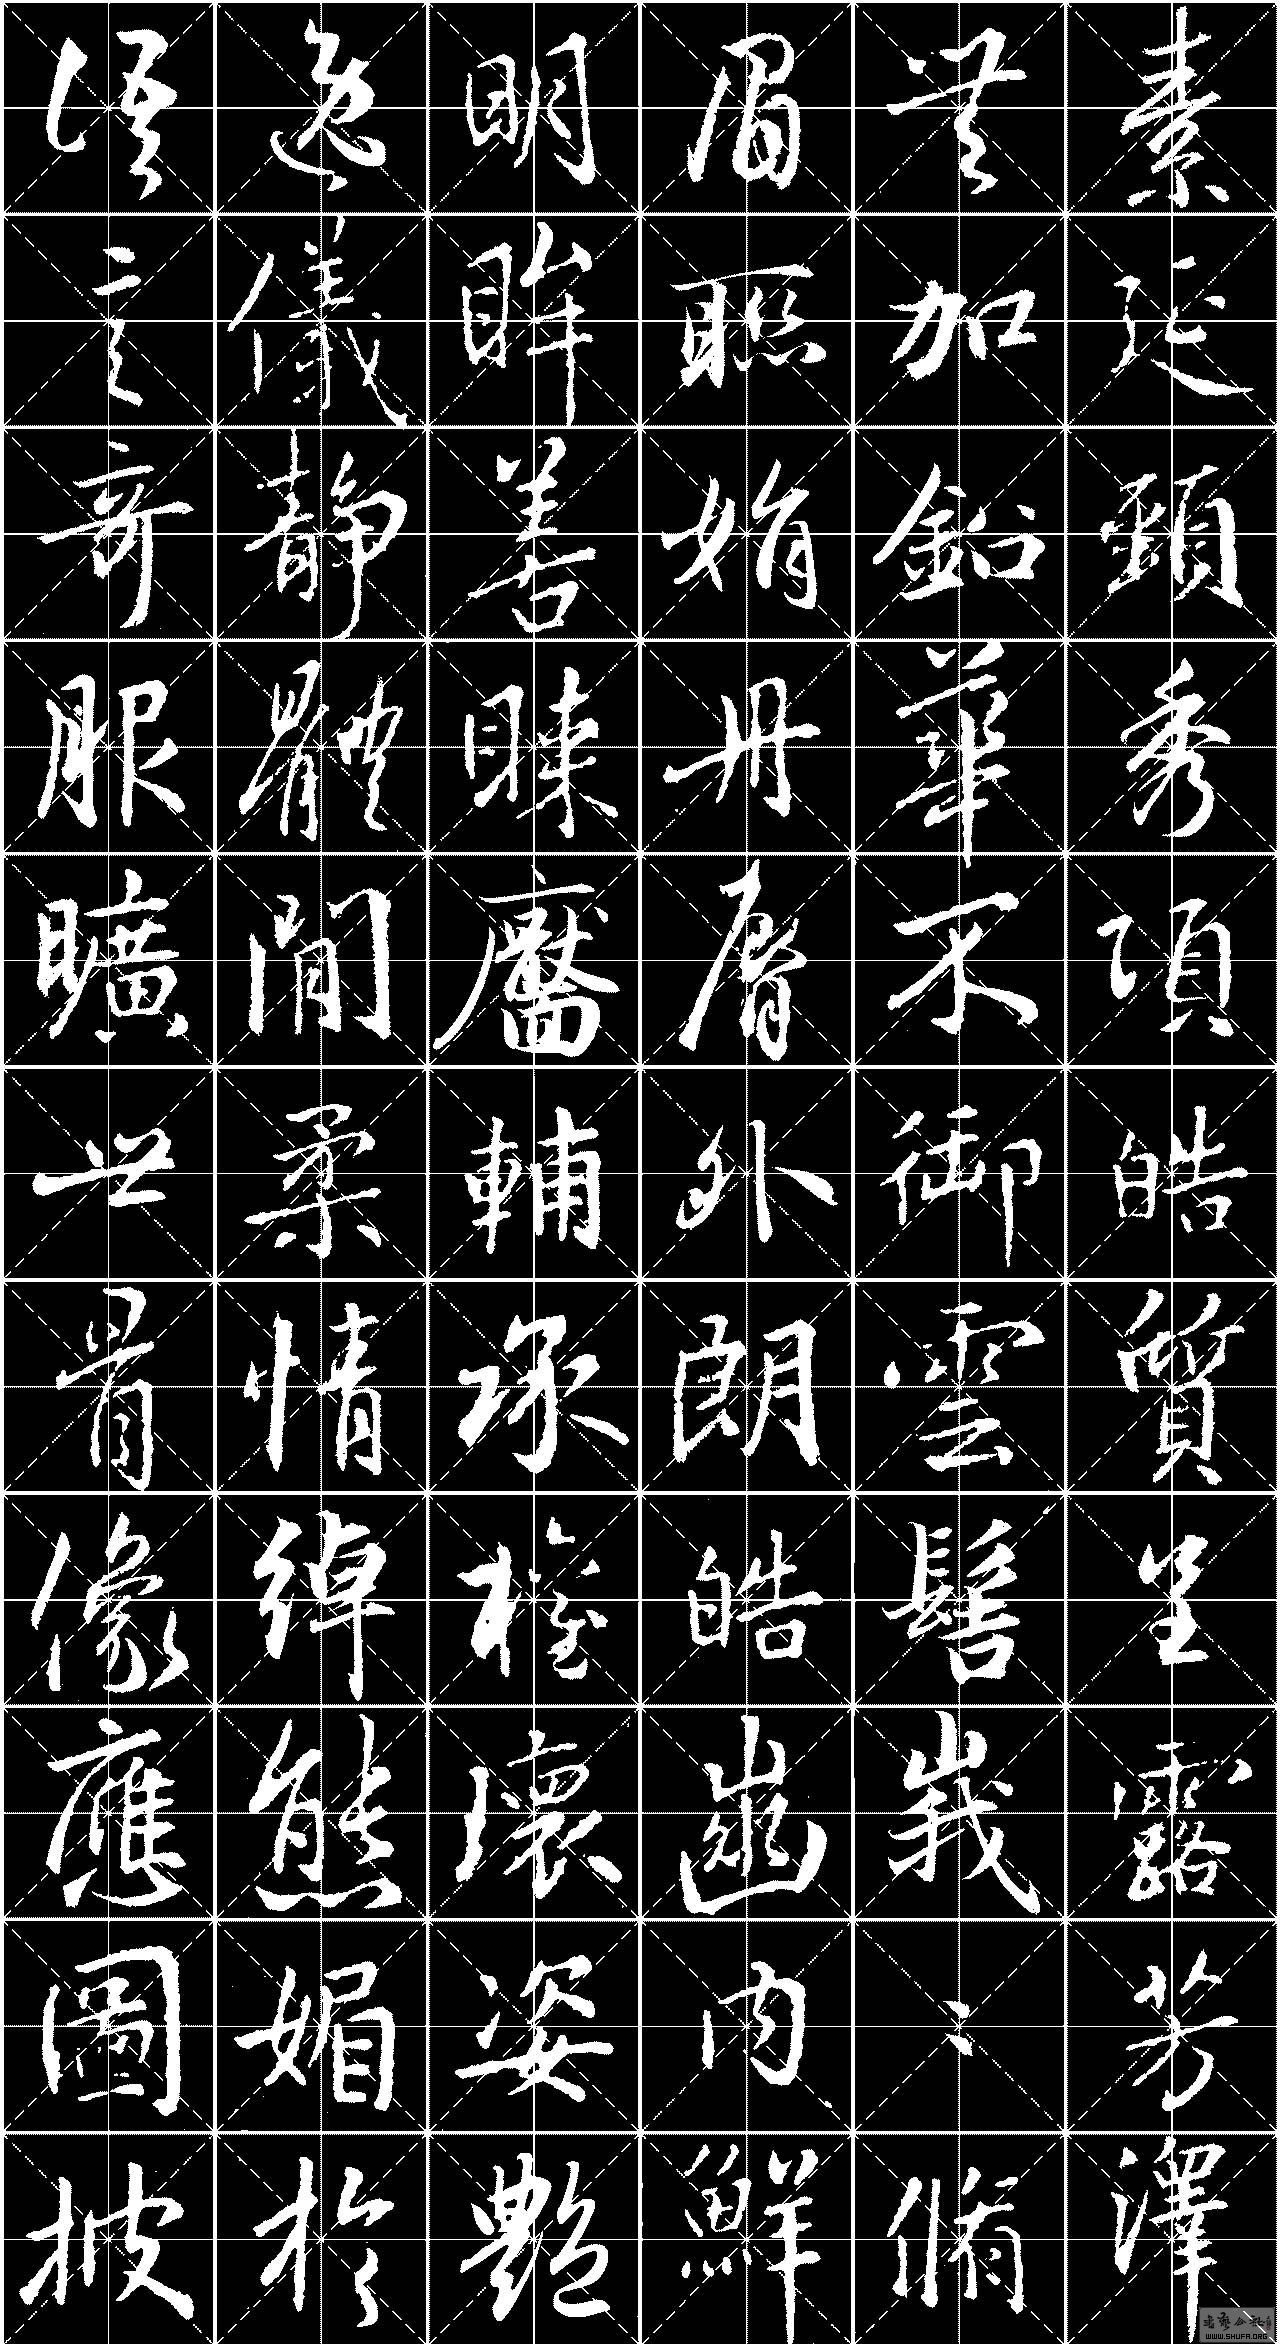 素延頸秀項皓質呈露芳澤
無加鉛華不御雲髻峩〻脩
眉聯娟丹脣外朗皓齒內鮮
明眸善睞靨輔承權瓌姿豔
逸儀靜體閒柔情綽態媚於
語言奇服曠世骨像應圖披
WWW.SHUFA.ORG